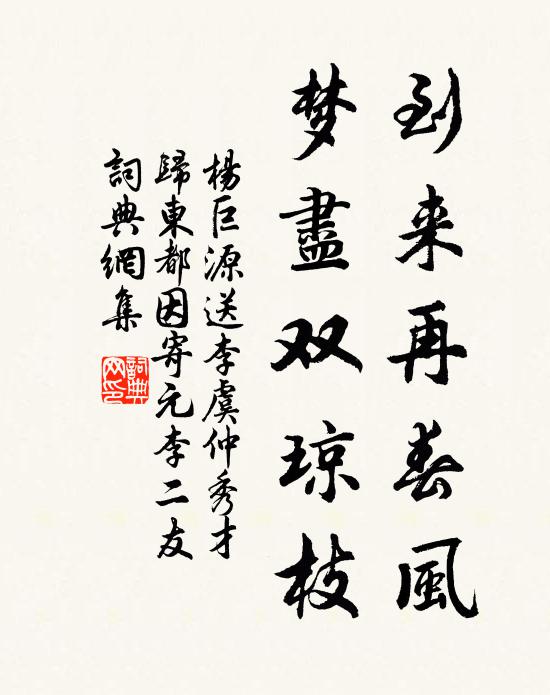 到来再春風
梦盡双琼枝
楊巨源送李虞仲秀才
歸東都因寄元李二友
詞典網集
詞典
网印